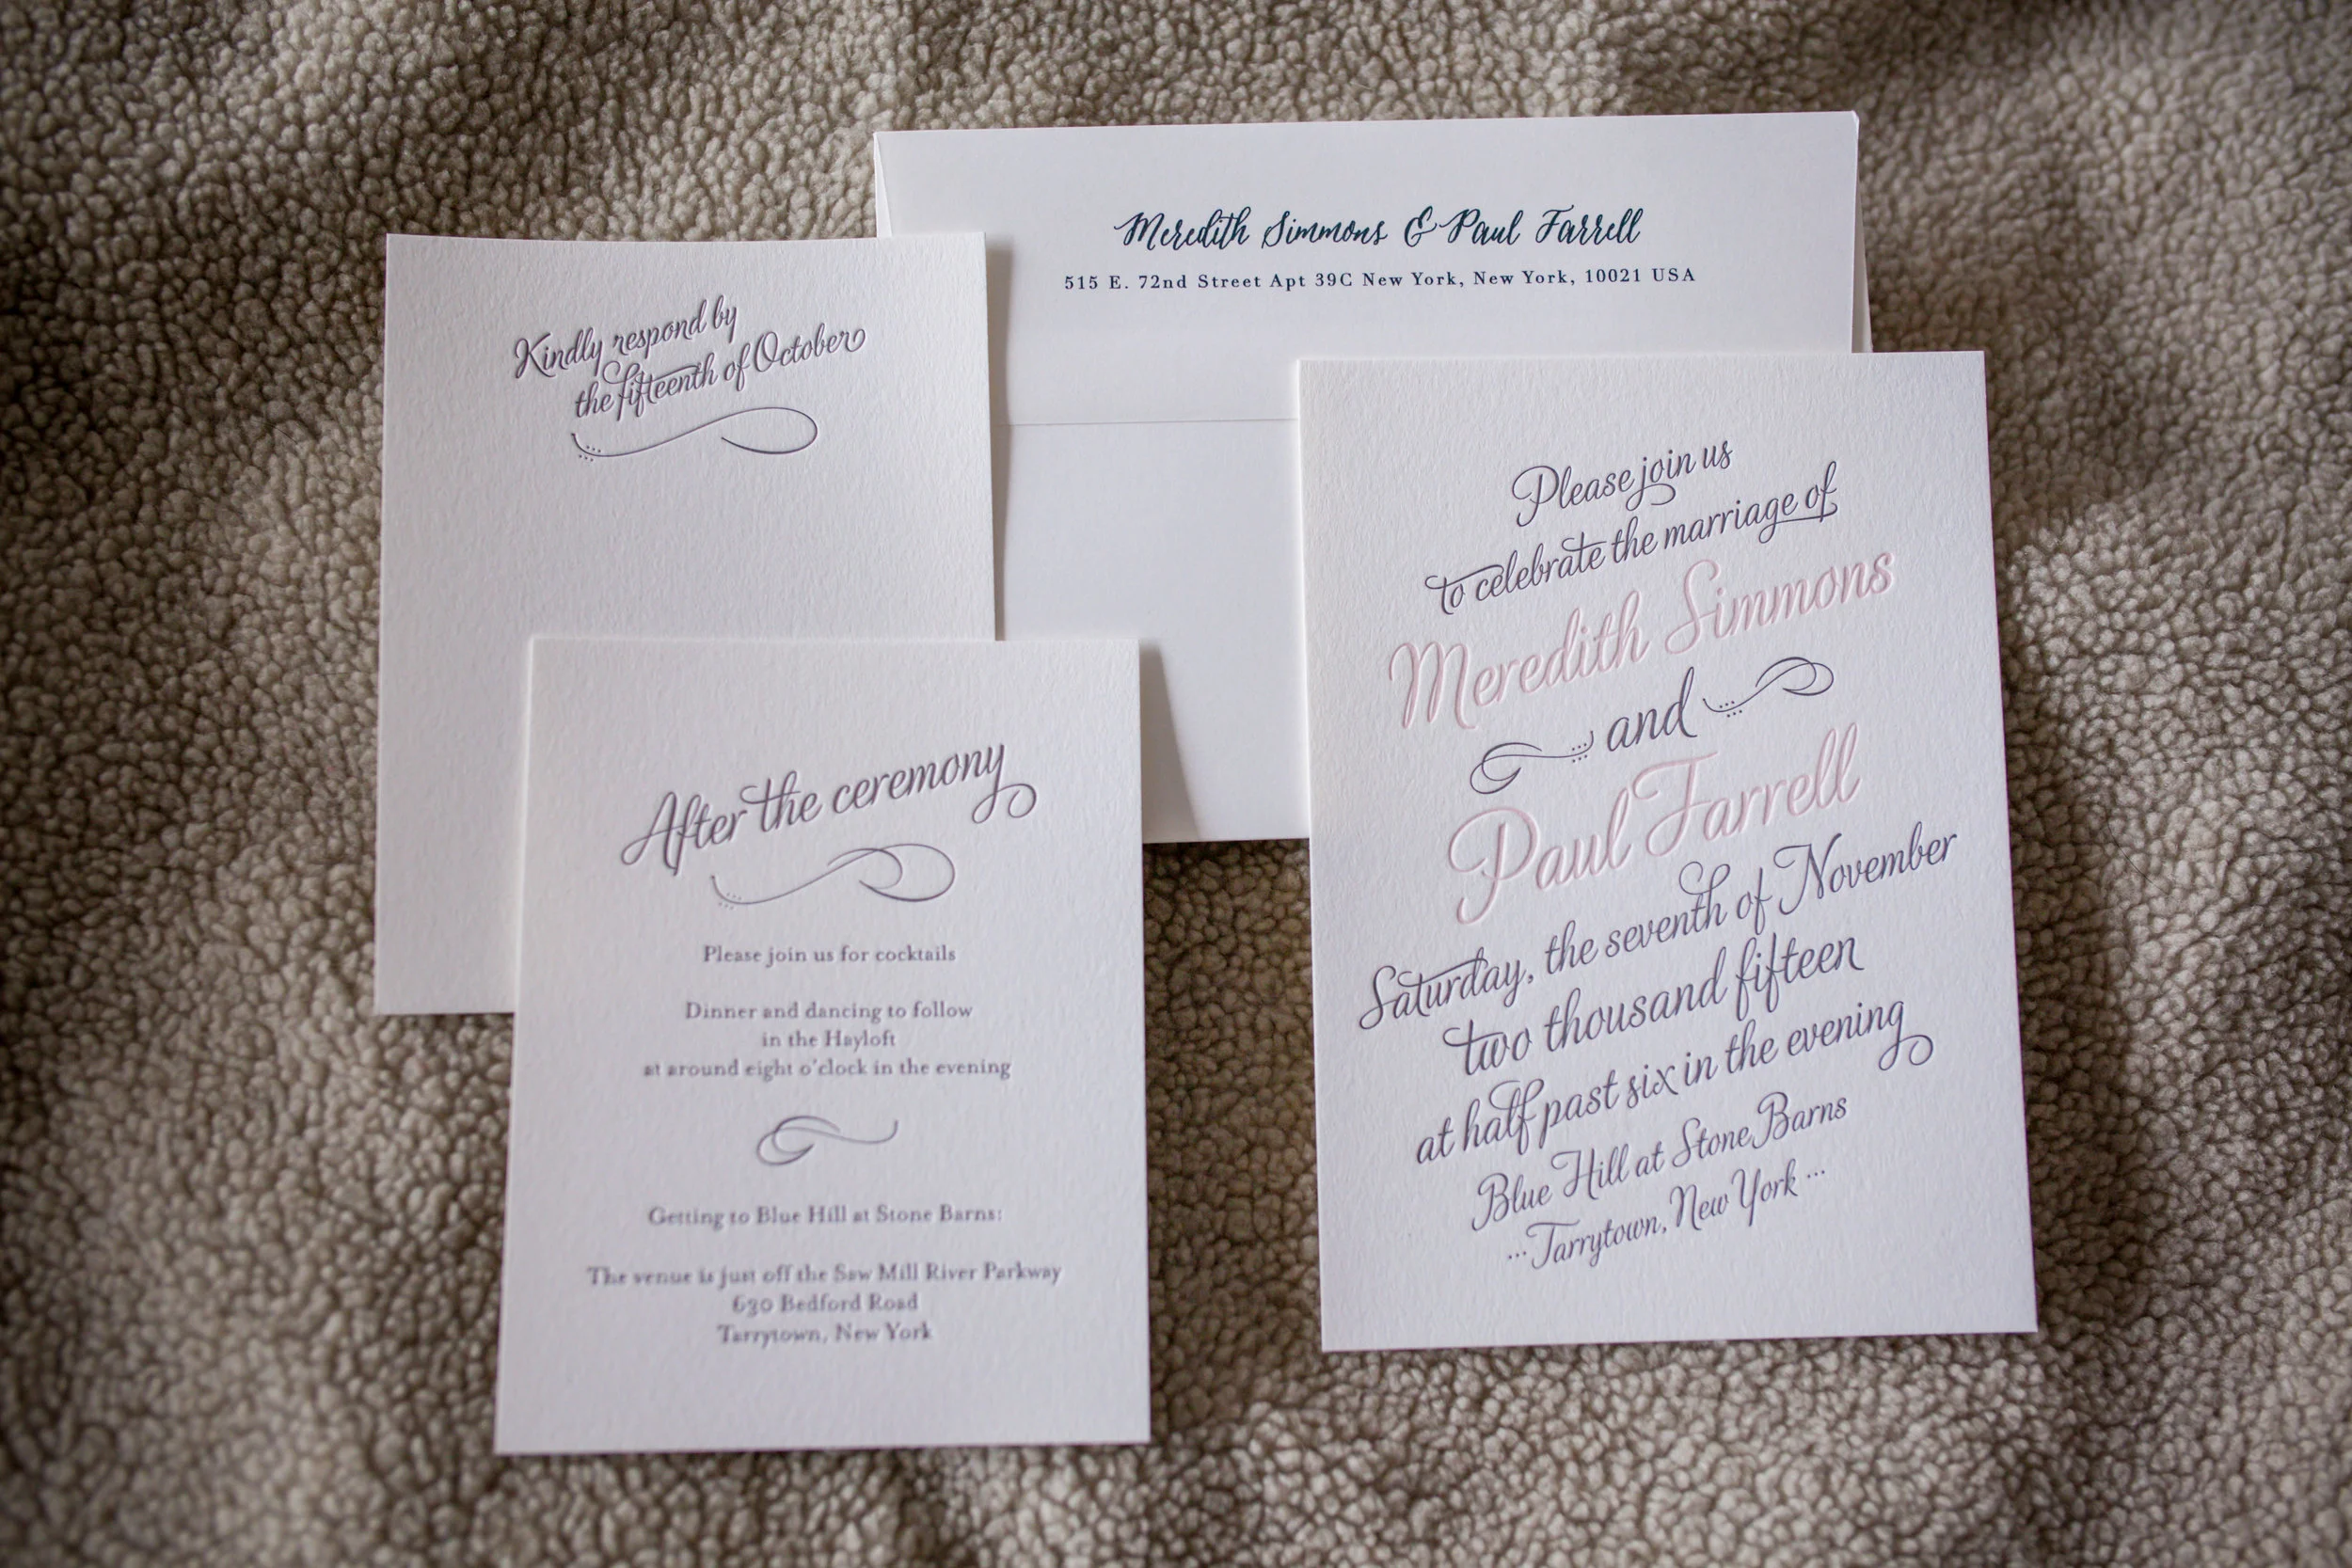 Meredith Simmons & Paul Farrell
515 E. 72nd Street Apt 39C New York, New York, 10021 USA
Kindly respond by
the fifteenth of October
After the ceremony
Please join us for cocktails
Dinner and dancing to follow
in the Hayloft
at around eight o'clock in the evening
Getting to Blue Hill at Stone Barns:
The venue is just off the Saw Mill River Parkway
630 Bedford Road
Tarrytown, New York
Please join us
to celebrate the marriage of
Meredith Simmons
and
Paul Farrell
Saturday, the seventh of November
two thousand fifteen
at half past six in the evening
Blue Hill at Stone Barns
...Tarrytown, New York...